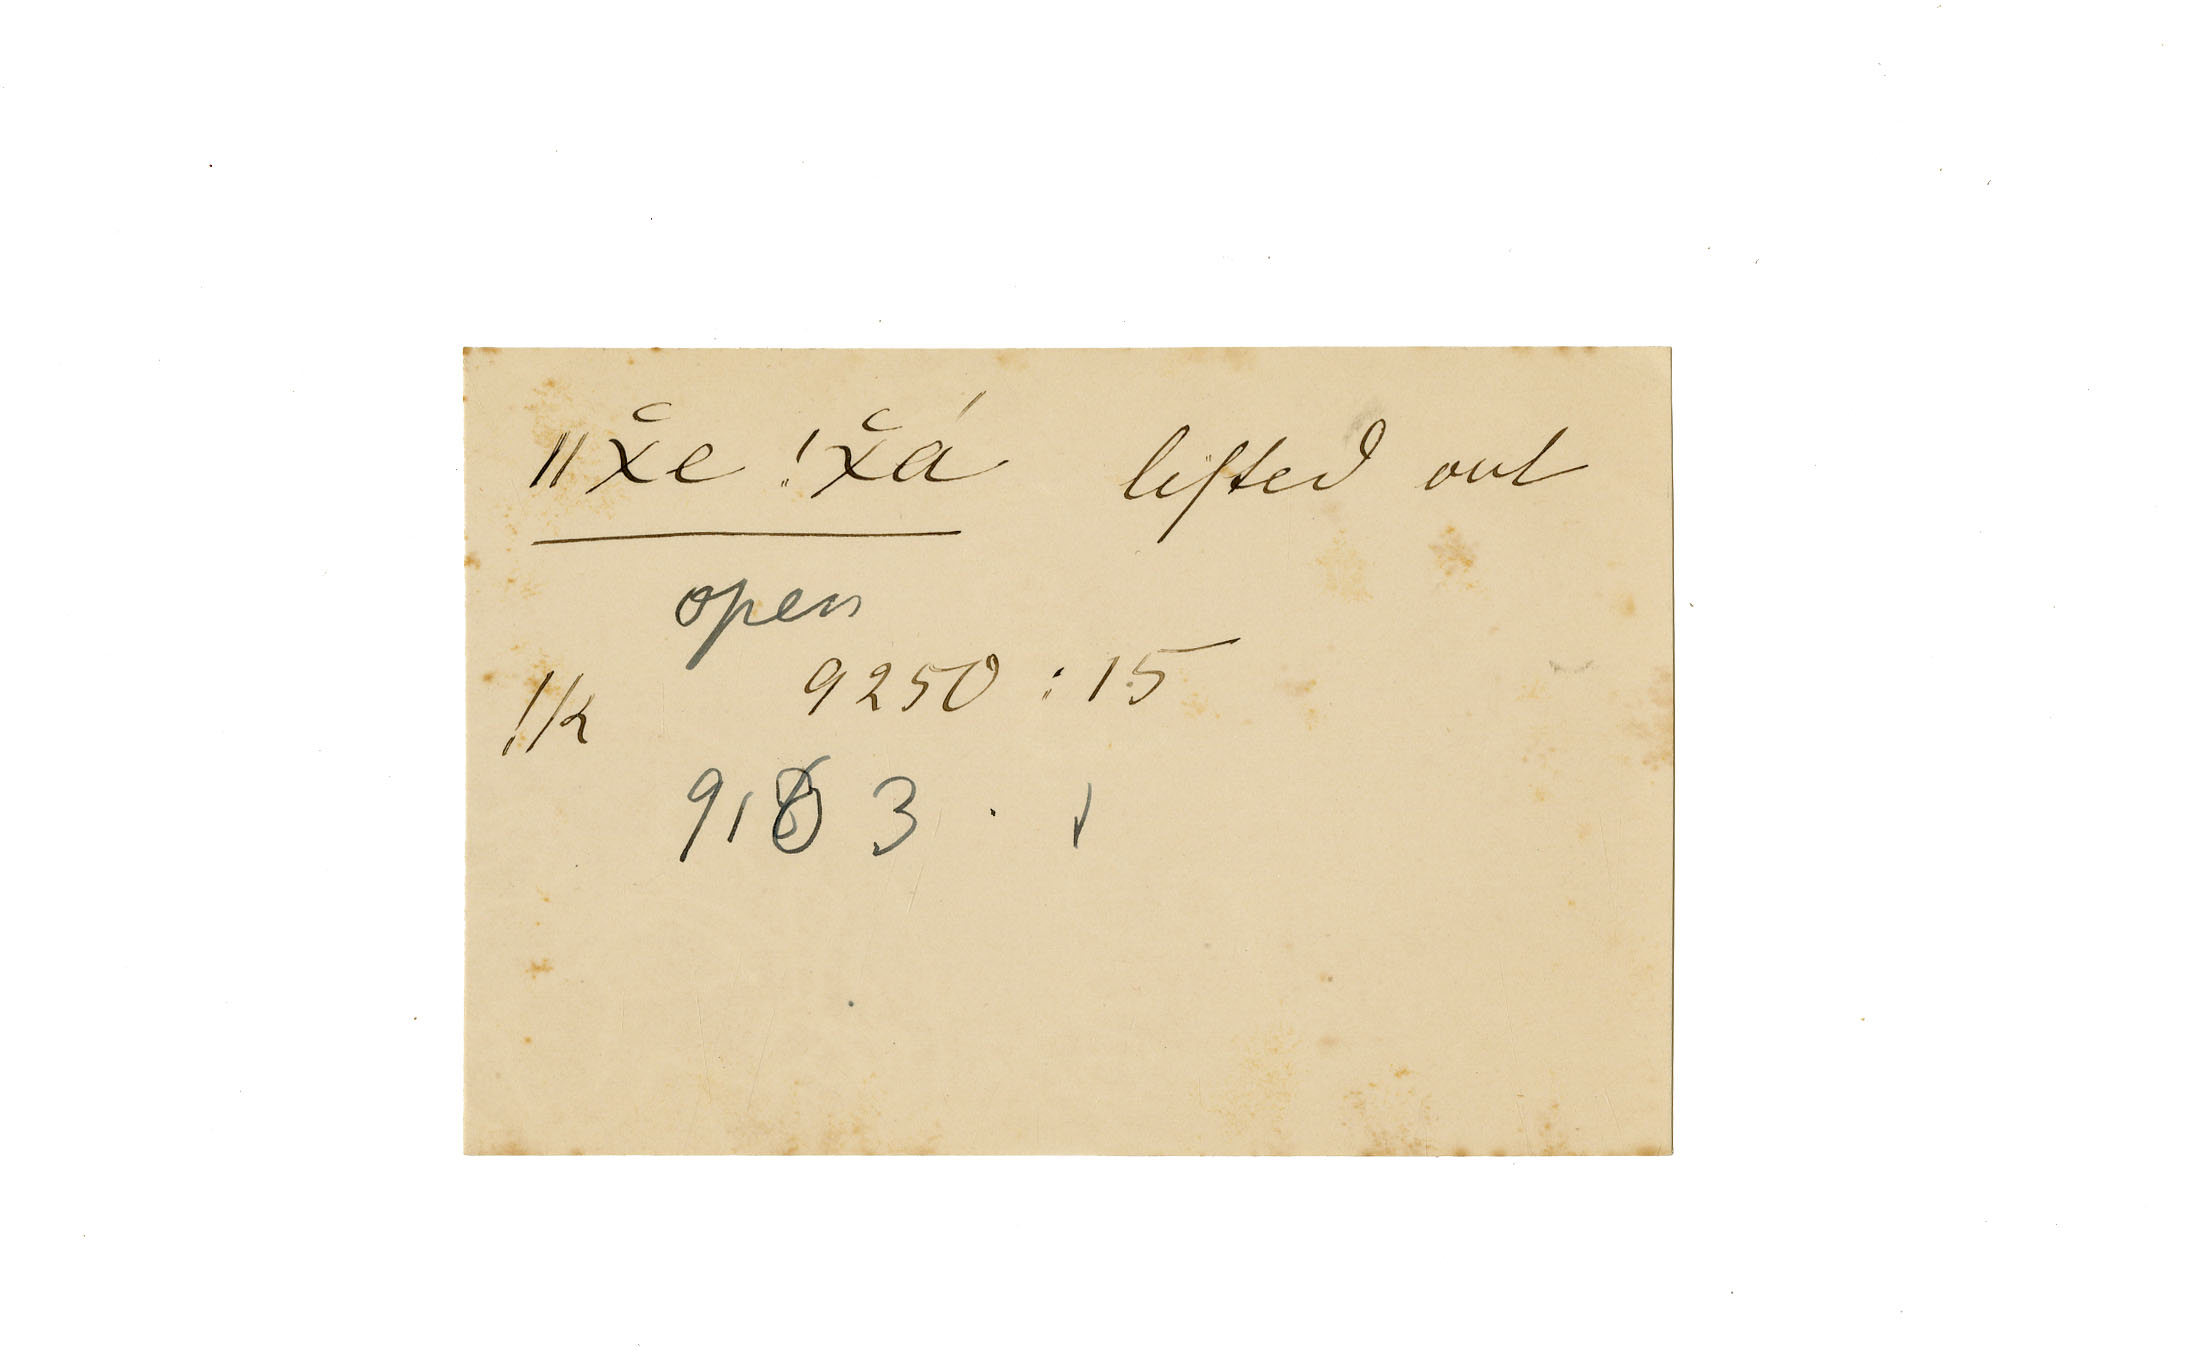 ǁx̆e !x̆á lifted out
open
9250 : 15
!k
9183 . 1